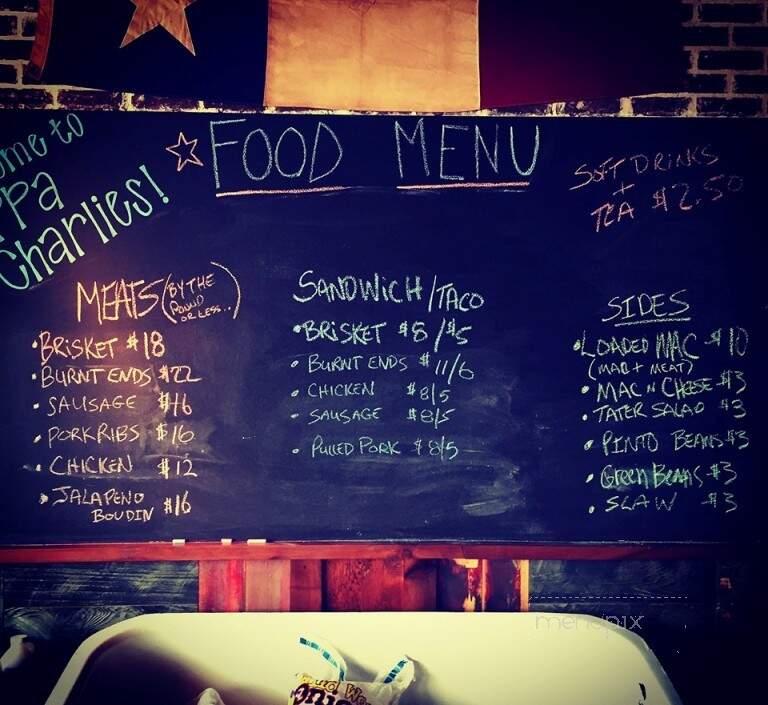 ome to
Pa
Charlies!
FOOD MENU
SOFT DRINKS
+
TEA $2.50
MEATS (BY THE
POUND
OR LESS..)
• BRISKET $18
• BURNT ENDS $22
• SAUSAGE $16
• PORK RIBS $16
• CHICKEN $12
• JALAPENO
BOUDIN $16
SANDWICH/TACO
• BRISKET $8/$5
• BURNT ENDS $11/6
• CHICKEN $8/5
• SAUSAGE $8/5
• PULLED PORK $8/5
SIDES
• LOADED MAC $10
(MAC + MEAT)
• MAC N CHEESE $3
• TATER SALAD $3
• PINTO BEANS $3
• Green BEANS $3
• SLAW $3
menupix